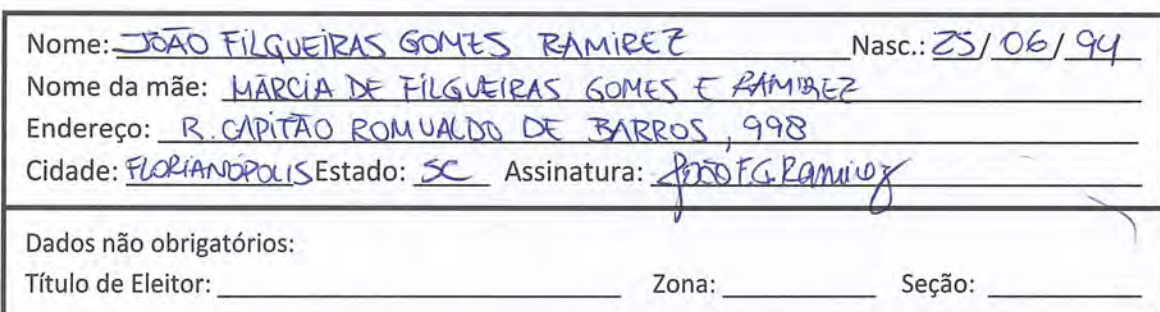 Nome: JOÃO FILGUEIRAS GOMES RAMIREZ Nasc.: 25/06/94
Nome da mãe: MÁRCIA DE FILGUEIRAS GOMES E RAMIREZ
Endereço: R. CAPITÃO ROMUALDO DE BARROS, 998
Cidade: FLORIANÓPOLIS Estado: SC Assinatura: João F.G. Ramirez
Dados não obrigatórios:
Título de Eleitor: Zona: Seção: